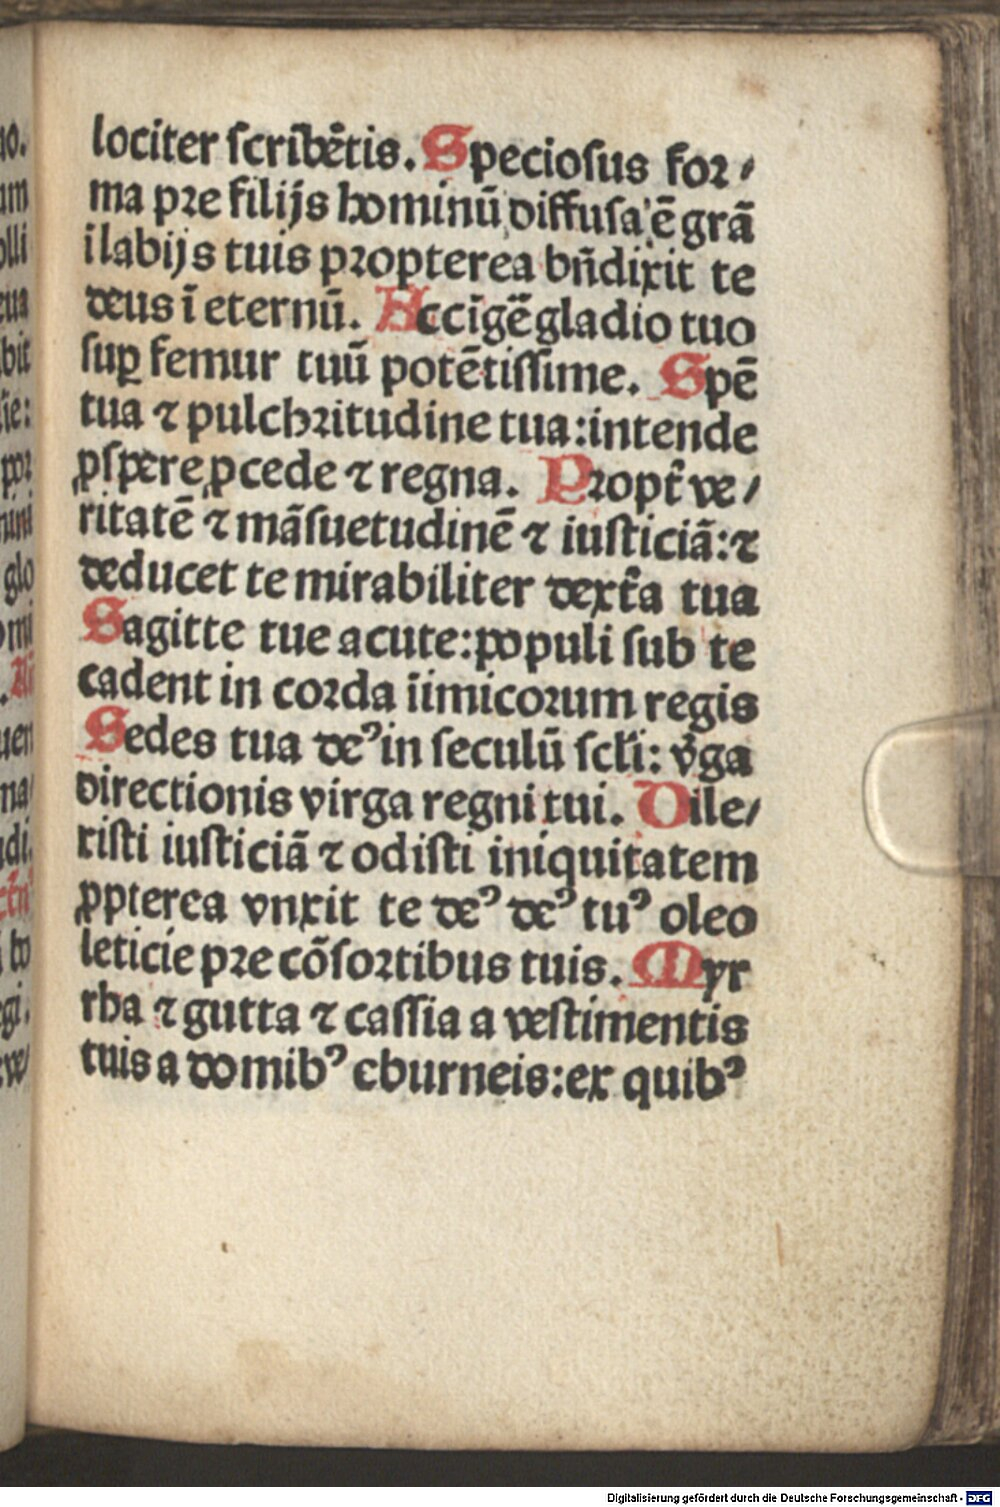 lociter ſcribētis. Specioſus for⸗
ma pre filijs hominū diffuſa ē grā
ī labijs tuis propterea bn̄dixit te
deus ī eternū. Accīgē gladio tuo
ſuꝑ femur tuū potētiſſime. Spē
tua ⁊ pulchritudine tua: intende
ꝓſpere ꝓcede ⁊ regna. Propt̄ ve⸗
ritatē ⁊ māſuetudinē ⁊ iuſticiā: ⁊
deducet te mirabiliter dext̄a tua
Sagitte tue acute: populi ſub te
cadent in corda iīmicorum regis
Sedes tua deꝰ in ſeculū ſcl̄i: v̄ga
directionis virga regni tui. Dile⸗
xiſti iuſticiā ⁊ odiſti iniquitatem
ꝓpterea vnxit te deꝰ deꝰ tuꝰ oleo
leticie pre cōſortibus tuis. Myr
rha ⁊ gutta ⁊ caſſia a veſtimentis
tuis a domibꝰ eburneis: ex quibꝰ
Digitalisierung gefördert durch die Deutsche Forschungsgemeinschaft - DFG